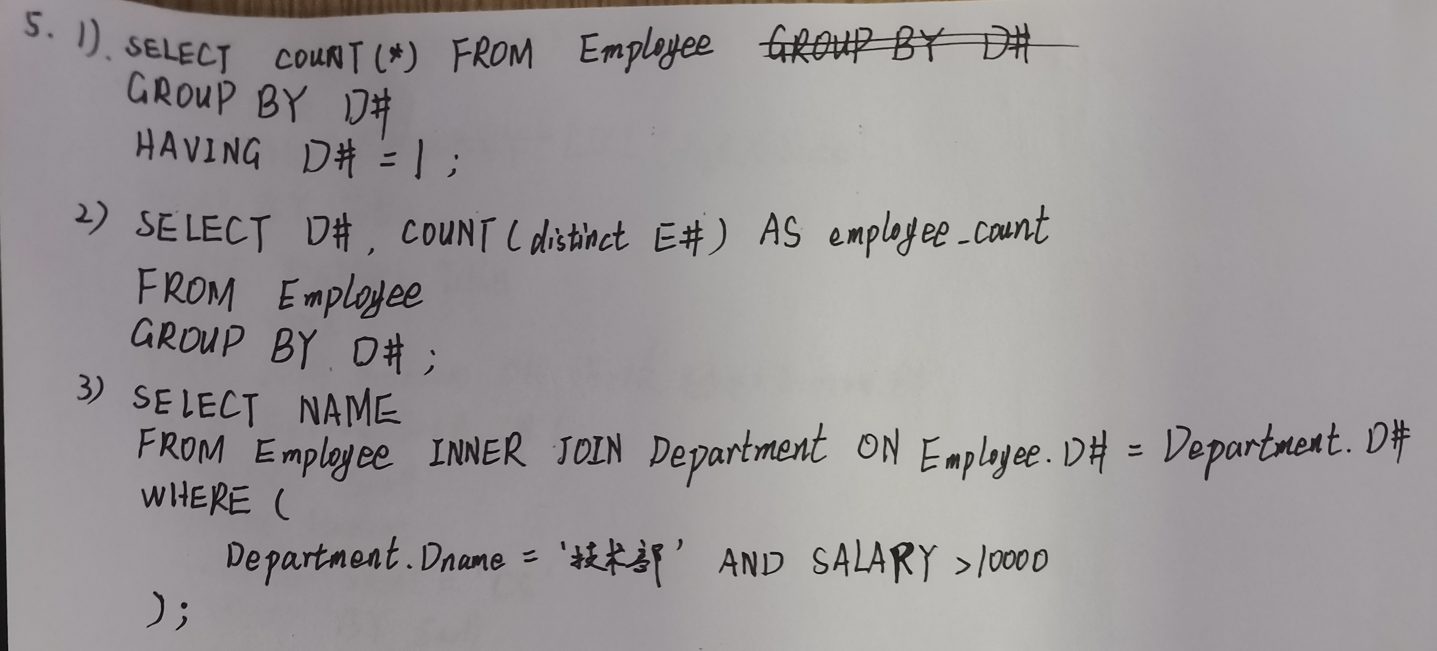 5. 1). SELECT COUNT(*) FROM Employee GROUP BY D#
GROUP BY D#
HAVING D# = 1 ;
2) SELECT D# , COUNT ( distinct E# ) AS employee_count
FROM Employee
GROUP BY D# ;
3) SELECT NAME
FROM Employee INNER JOIN Department ON Employee. D# = Department. D#
WHERE (
Department. Dname = '技术部' AND SALARY >10000
);